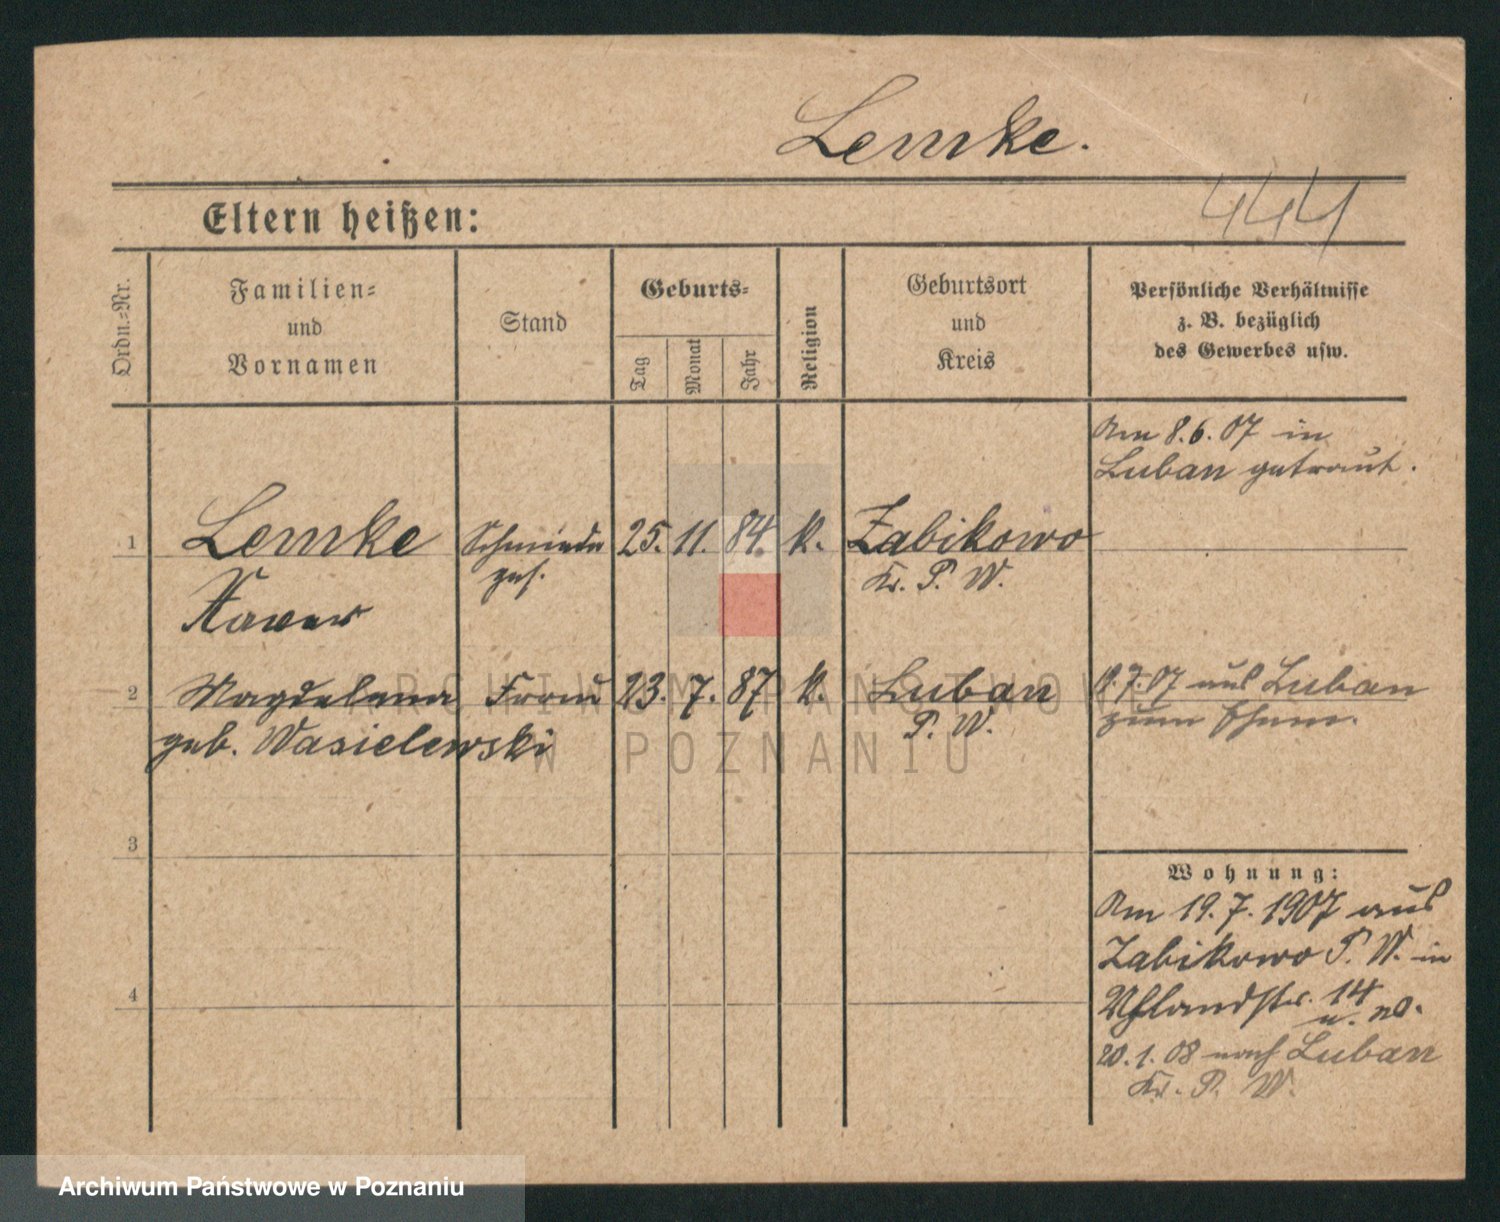 Lemke.
444
Eltern heißen:
Ordn.-Nr.
Familien-
und
Vornamen
Stand
Geburts-
Tag
Monat
Jahr
Religion
Geburtsort
und
Kreis
Persönliche Verhältnisse
z. B. bezüglich
des Gewerbes usw.
Am 8.6.07 in
Luban getraut.
1 Lemke Schmiede 25. 11. 84. k. Zabikowo
ges. Kr. P. W.
Xaver
2 Magdalena Frau 23. 7. 87 k. Luban 19.7.07 aus Luban
geb. Wasielewski P. W. zum Ehem.
3
4
Wohnung:
Am 19.7.1907 aus
Zabikowo P. W. in
Uhlandstr. 14
u. no.
20.1.08 nach Luban
Kr. P. W.
ARCHIWUM PAŃSTWOWE
W POZNANIU
Archiwum Państwowe w Poznaniu